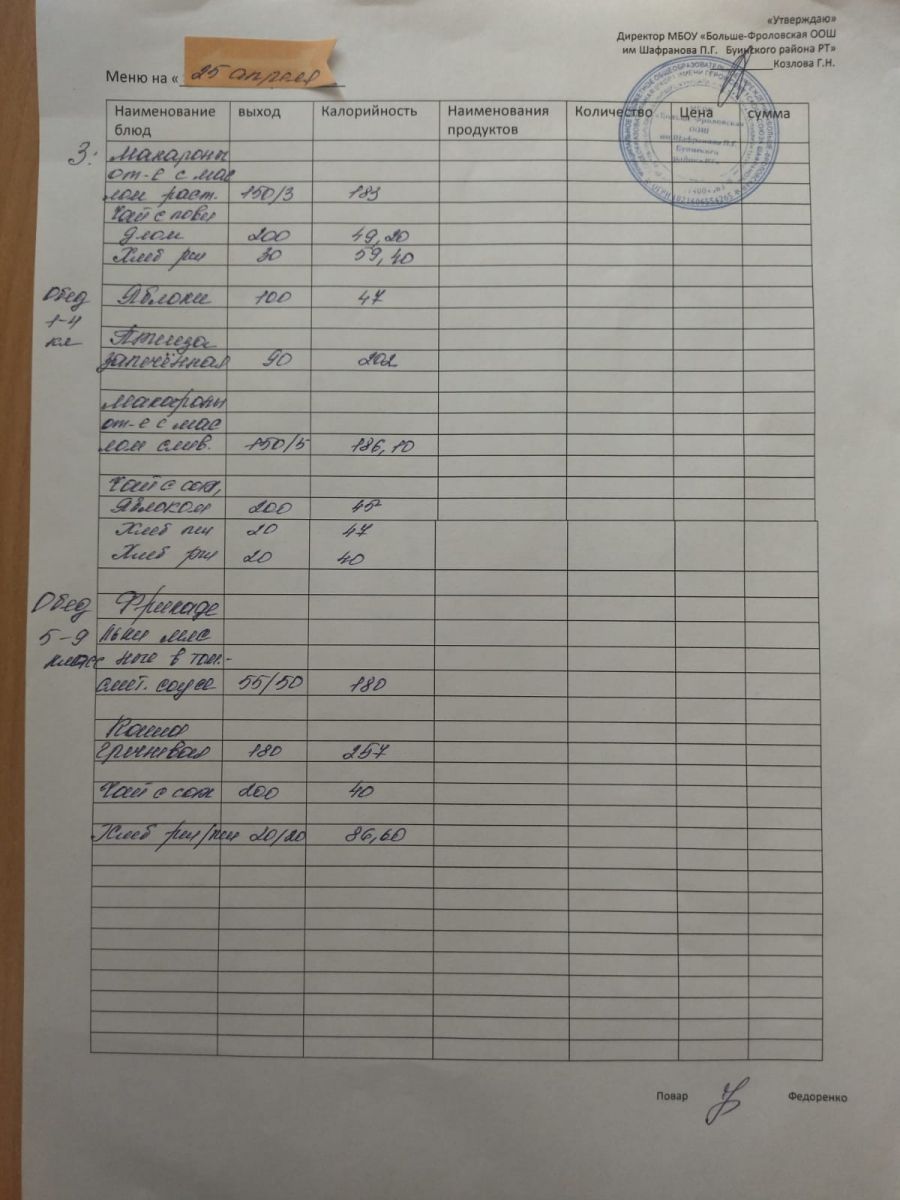 «Утверждаю»
Директор МБОУ «Больше-Фроловская ООШ
им Шафранова П.Г. Буинского района РТ»
Козлова Г.Н.
Меню на « 25 апреля
Наименование блюд выход Калорийность Наименования продуктов Количество Цена сумма
З: Макароны
от-е с мас
лом раст. 150/3 183
Чай с пови
длом 200 49,20
Хлеб рж 30 59,40
Обед Яблоки 100 47
1-4
кл Птица
запечённая 90 202
Макароны
от-е с мас
лом слив. 150/5 186,10
Чай с сах,
Яблоком 200 45
Хлеб пш 20 47
Хлеб рж 20 40
Обед Фрикаде
5-9 льки мяс
класс ные в том.-
смет. соусе 55/50 180
Каша
гречневая 180 257
Чай с сах 200 40
Хлеб рж/пш 20/20 86,60
Повар Федоренко